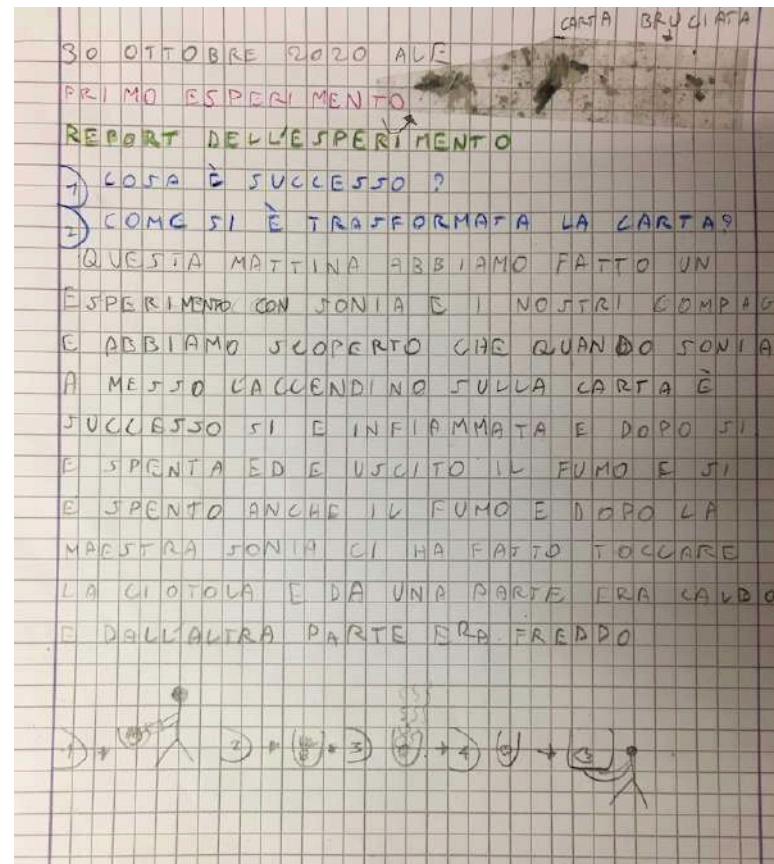 CARTA BRUCIATA
30 OTTOBRE 2020 ALE
PRIMO ESPERIMENTO
REPORT DELL'ESPERIMENTO
1) COSA È SUCCESSO ?
2) COME SI È TRASFORMATA LA CARTA?
QUESTA MATTINA ABBIAMO FATTO UN
ESPERIMENTO CON SONIA E I NOSTRI COMPAG
E ABBIAMO SCOPERTO CHE QUANDO SONIA
A MESSO L'ACCENDINO SULLA CARTA È
SUCCESSO SI E INFIAMMATA E DOPO SI
E SPENTA ED E USCITO IL FUMO E SI
E SPENTO ANCHE IL FUMO E DOPO LA
MAESTRA SONIA CI HA FATTO TOCCARE
LA CIOTOLA E DA UNA PARTE ERA CALDO
E DALL'ALTRA PARTE ERA FREDDO
1) 2) 3) 4)